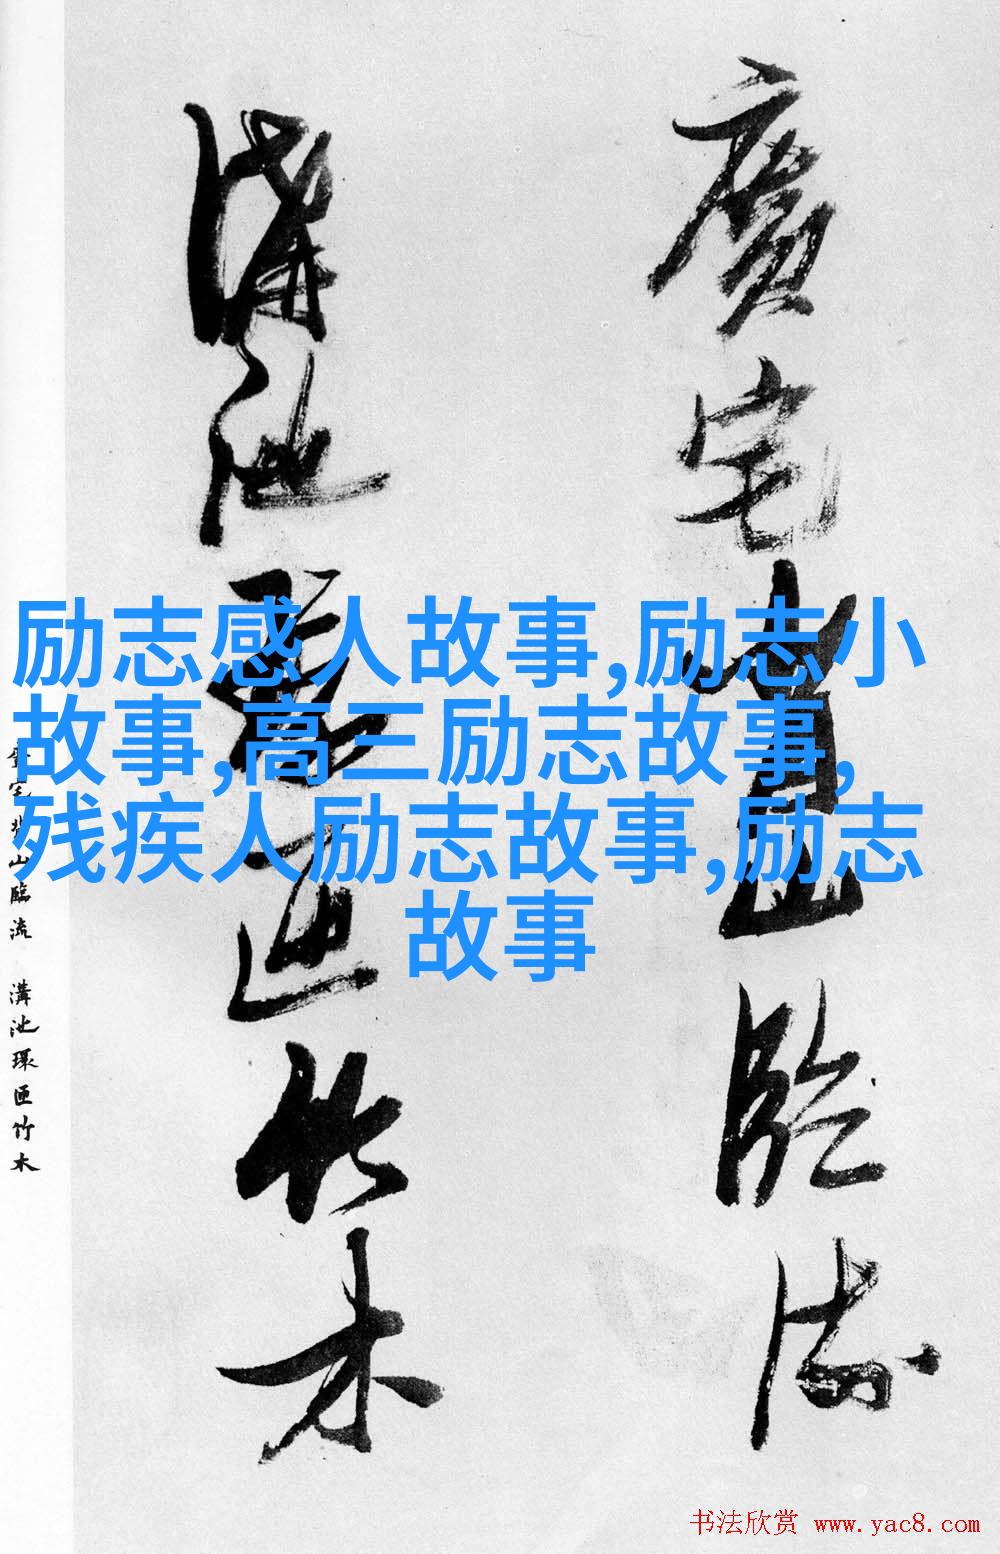 廣宅背山臨流
溝池環匝竹木
励志感人故事,励志小
故事,高三励志故事,
残疾人励志故事,励志
故事
廣宅背山臨流 溝池環匝竹木
书法欣赏 www.yac8.com